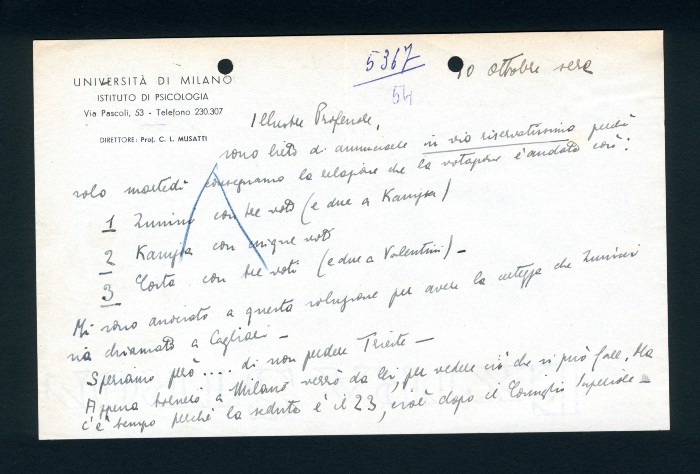 5367
54
UNIVERSITÀ DI MILANO
ISTITUTO DI PSICOLOGIA
Via Pascoli, 53 - Telefono 230.307
DIRETTORE: Prof. C. L. MUSATTI
10 Ottobre sera
Illustre Professore,
sono lieto di annunciarle in via riservatissima perchè
solo martedì consegniamo la relazione che la votazione è andata così:
1 Zunini con tre voti (e due a Kanizsa)
2 Kanizsa con cinque voti
3 Iosta con tre voti (e due a Valentini) -
Mi sono associato a questa soluzione per avere la certezza che Zunini
sia chiamato a Cagliari -
Speriamo però .... di non perdere Trieste -
Appena tornerò a Milano verrò da Lei, per vedere ciò che si può fare. Ma
c'è tempo perchè la seduta è il 23, cioè dopo il Consiglio Superiore -